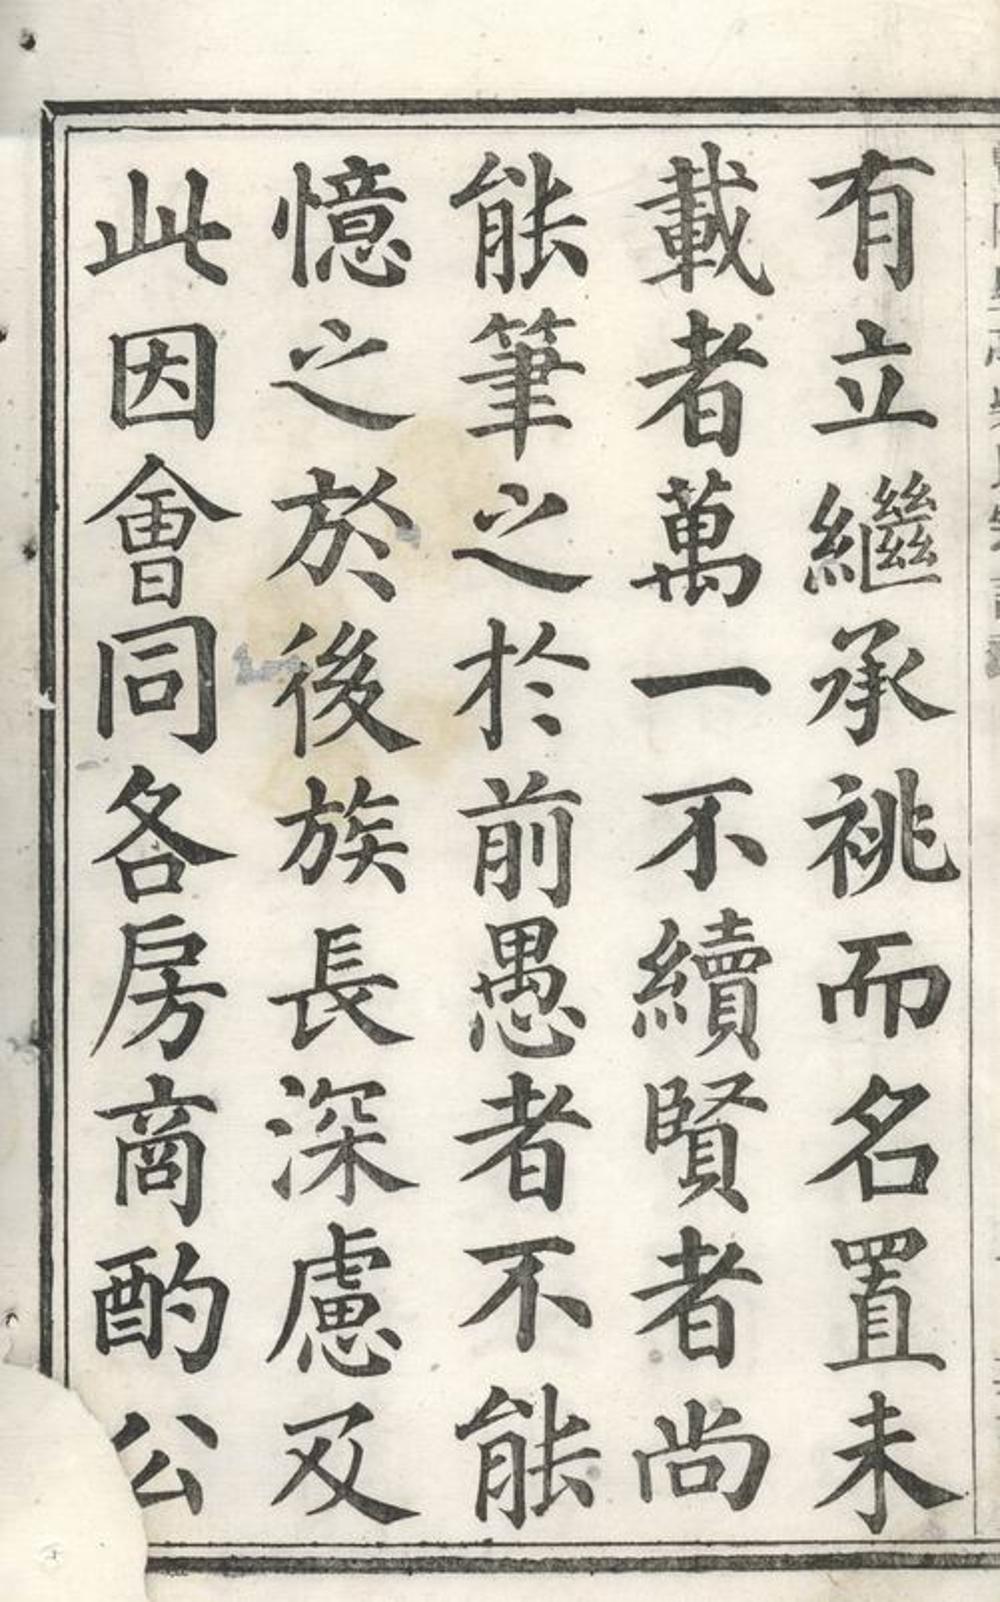 有立繼承祧而名置未
載者萬一不續賢者尚
能筆之於前愚者不能
憶之於後族長深慮及
此因會同各房商酌公